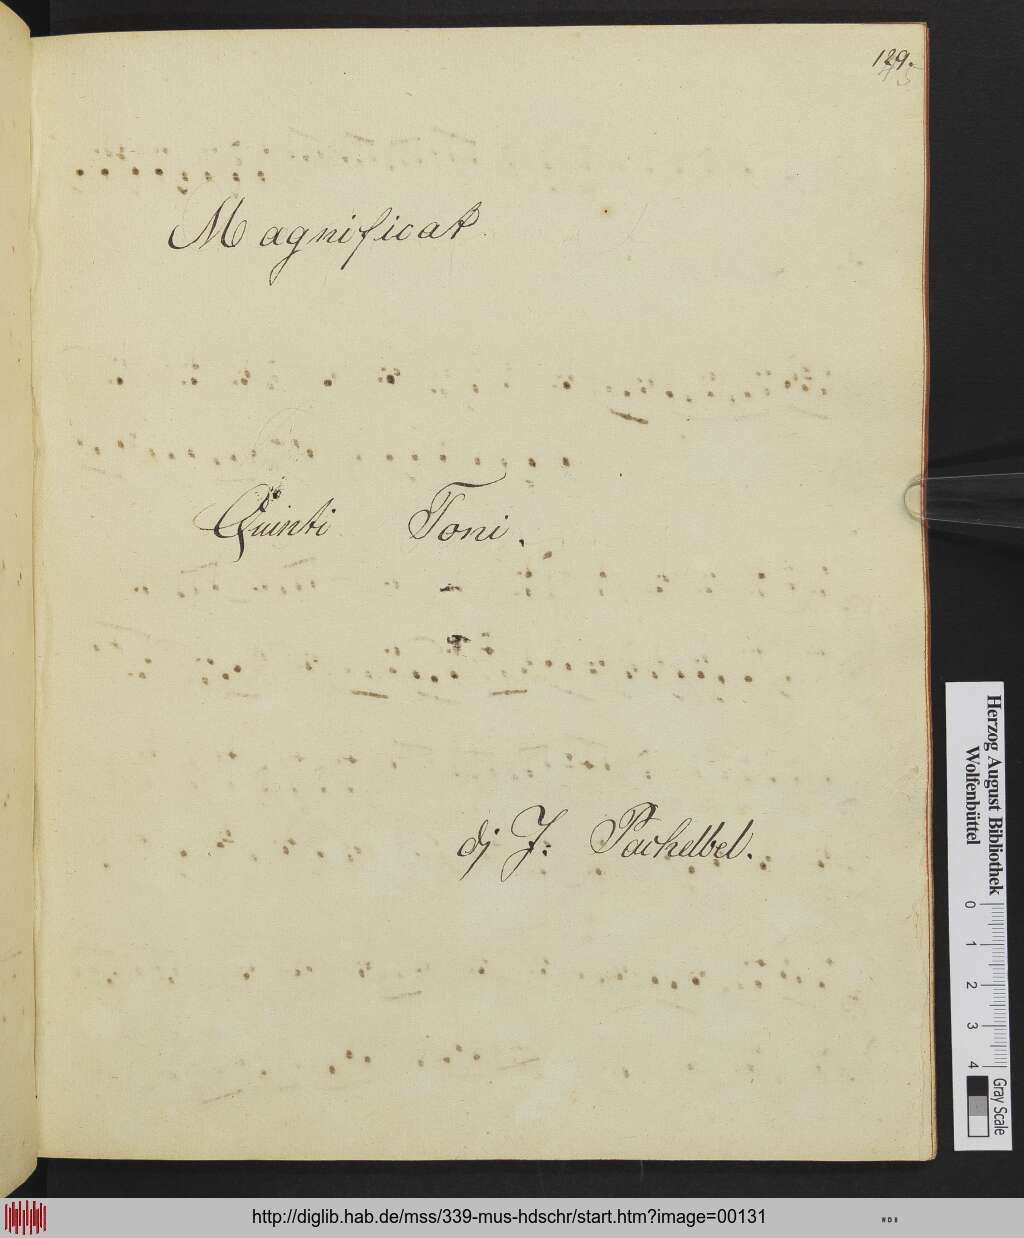 129.
Magnificat
Quinti Toni.
dj J. Pachelbel.
Herzog August Bibliothek
Wolfenbüttel
0 1 2 3 4
Gray Scale
http://diglib.hab.de/mss/339-mus-hdschr/start.htm?image=00131